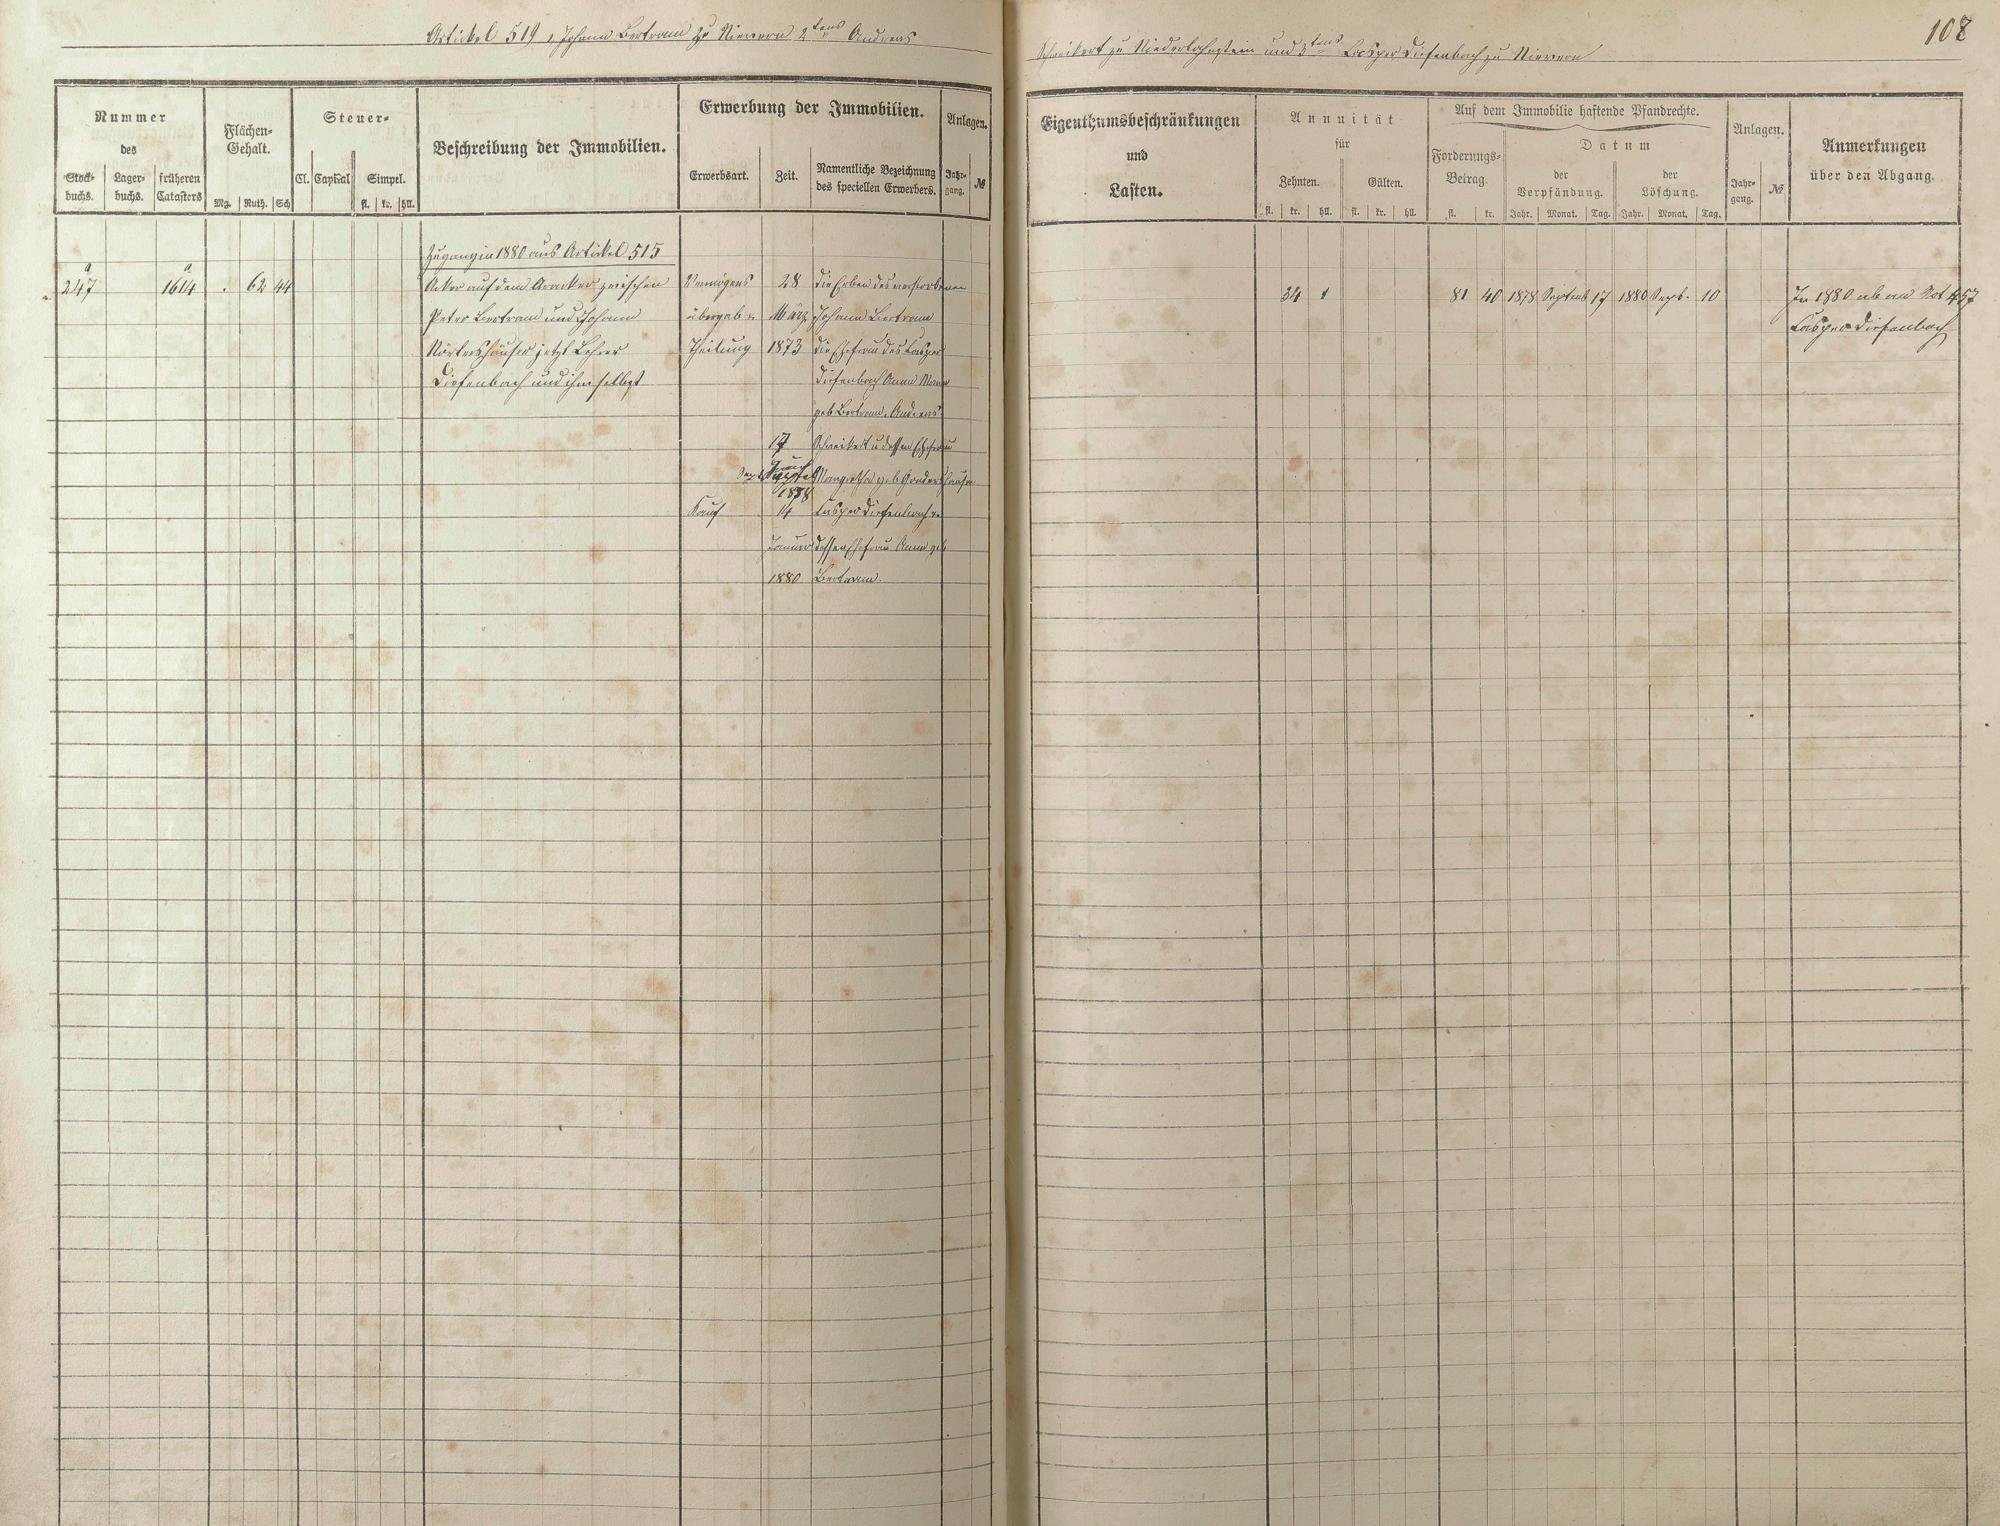 Artickel 519, Johann Bertram zu Nievern 2tens Andreas
Schreikert zu Niederlahnstein und 3tens Casper Diefenbach zu Nievern
108
Nummer
des
Stock-
buchs.
Lager-
buchs.
früheren
Catasters
Flächen-
Gehalt.
Mg. Ruth. Sch
Steuer-
Cl. Capital Simpel.
fl. kr. hll.
Beschreibung der Immobilien.
Erwerbung der Immobilien.
Erwerbsart. Zeit.
Namentliche Bezeichnung
des speciellen Erwerbers.
Anlagen.
Jahr-
gang.
№
Eigenthumsbeschränkungen
und
Lasten.
Annuität
für
Zehnten. Gülten.
fl. kr. hll. fl. kr. hll.
Auf dem Immobilie haftende Pfandrechte.
Forderungs-
Betrag.
fl. kr.
Datum
der
Verpfändung.
der
Löschung.
Jahr. Monat. Tag. Jahr. Monat. Tag.
Anlagen.
Jahr-
gang.
№
Anmerkungen
über den Abgang.
Zugang in 1880 aus Artickel 515
a a
247 1614 . 62 44 Acker auf dem zwischen Vermögens 28 die Erben des verstorbenen
Peter Bertram und Johann übergab u. März Johann Bertram
Nörtershäuser jetzt Lehrer Theilung 1873 die Ehefrau des Casper
Diefenbach und ihm selbst Diefenbach Anna Maria
geb Bertram. Andreas
17 Schreikert u dessen Ehefrau
Sept Margretha geb Gondershausen
1878
Kauf 14 Casper Diefenbach u.
Januar dessen Ehefrau Anna geb
1880 Bertram.
34 1 81 40 1878 Septemb 17 1880 Septb. 10 In 1880 ab an Art 457
Casper Diefenbach